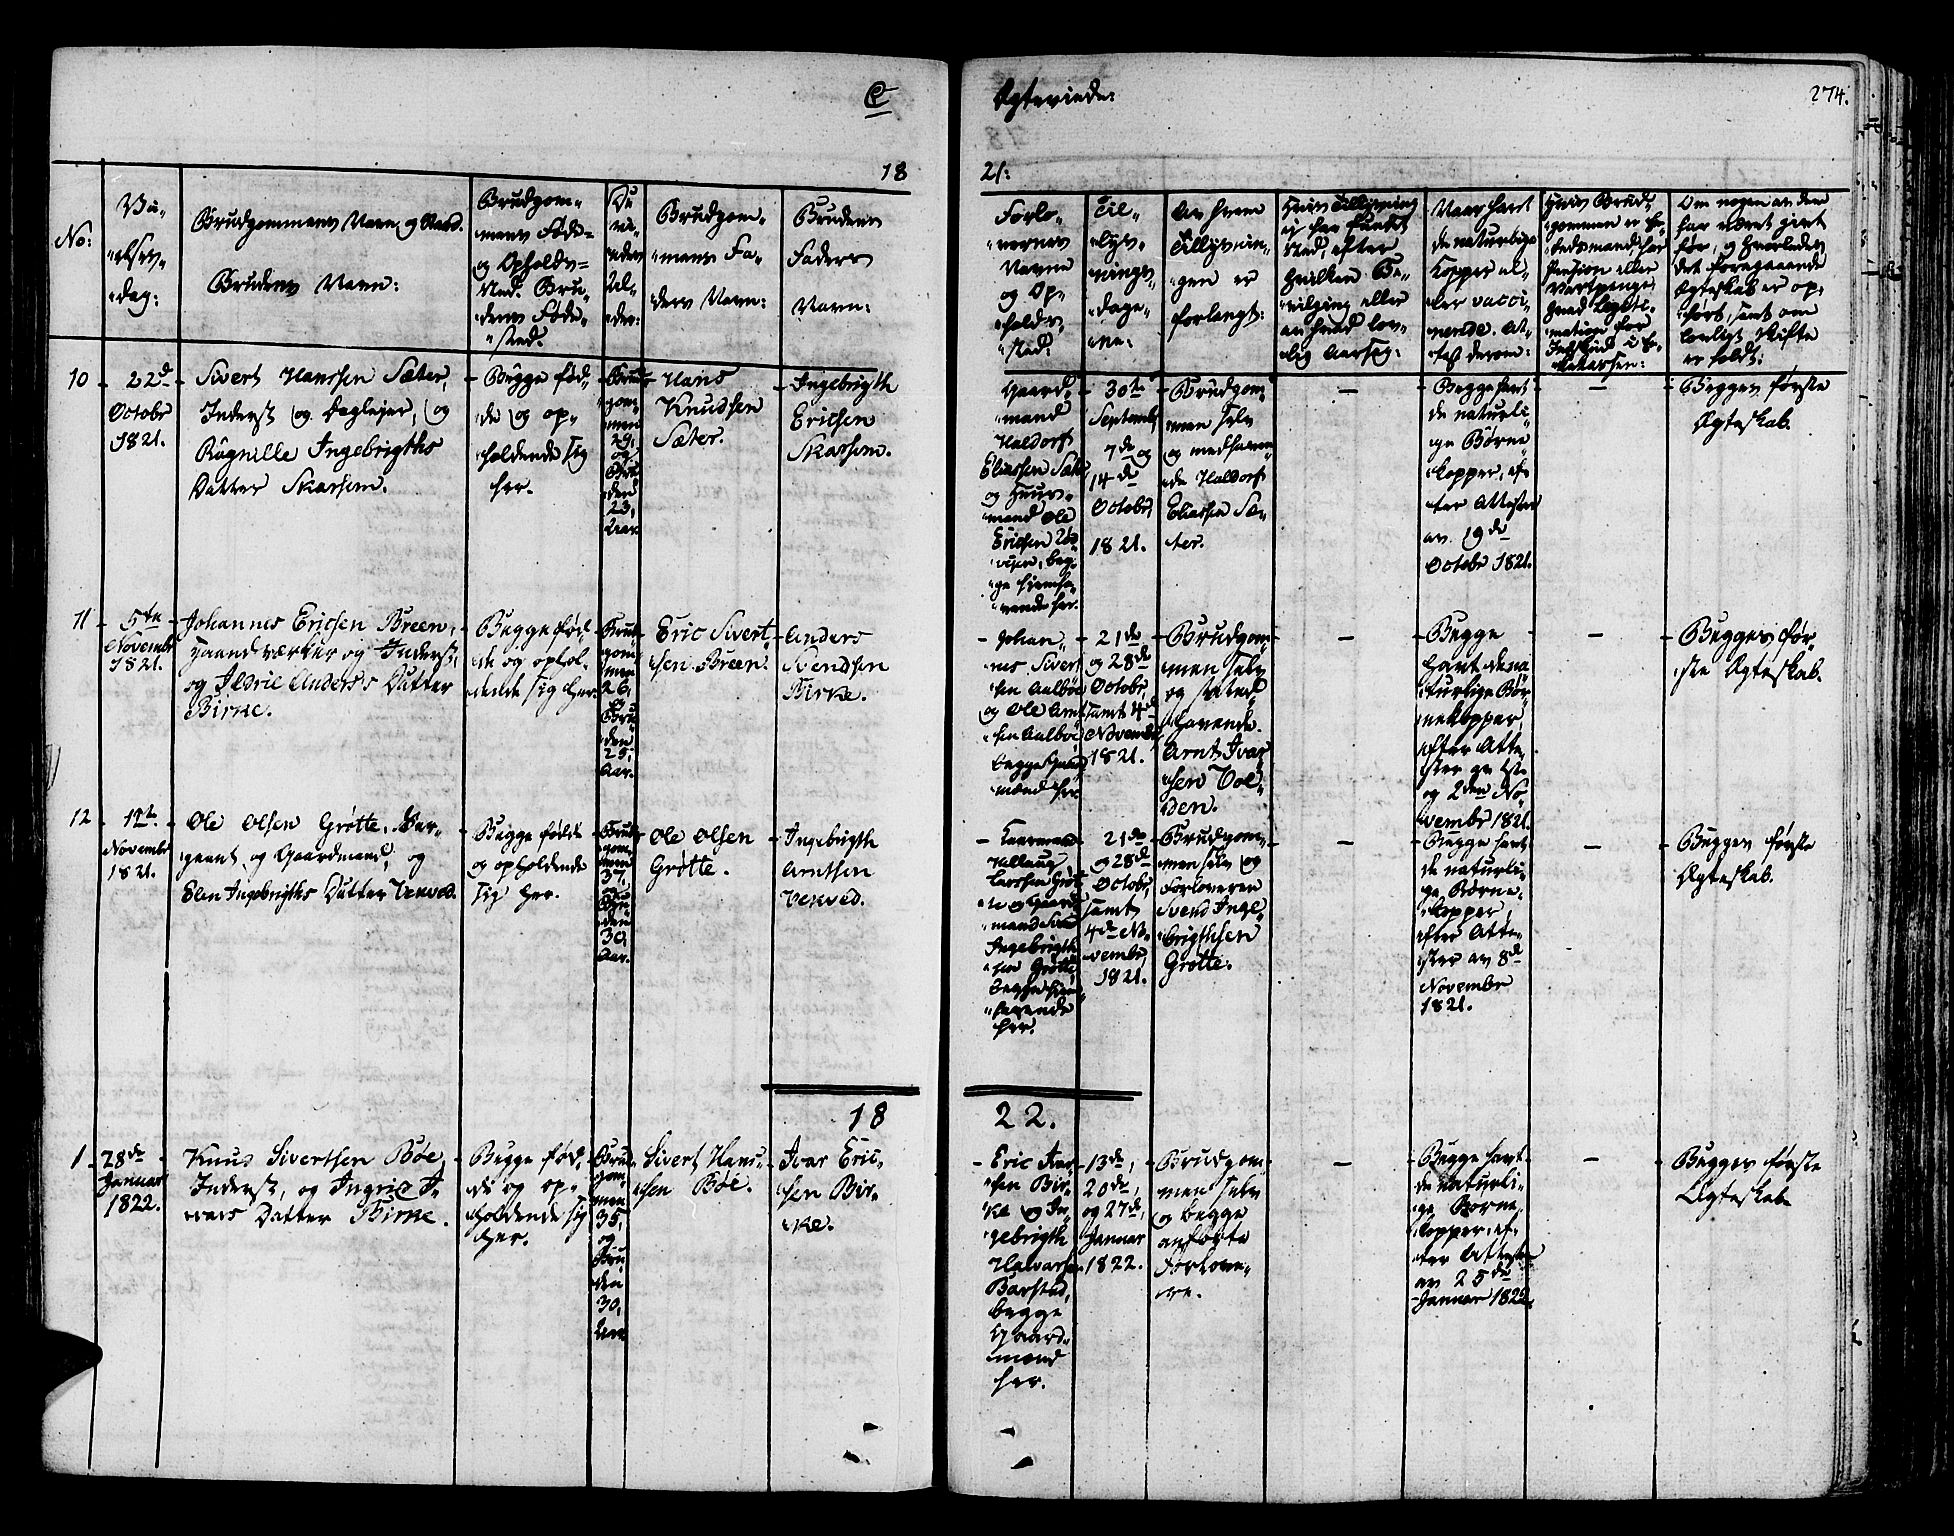 C
Ægteviede:
274.
18
21:
No:
Vi-
elses-
dag:
Brudgommens Navn og Stand.
Brudens Navn:
Brudgom-
mens Føde-
og Opholds-
Sted. Bru-
dens Føde-
sted.
Di
vi-
edes
Al-
der:
Brudgom-
mens Fa-
ders Navn:
Brudens
Faders
Navn:
Forlo-
vernes
Navne
og Op-
holds-
sted:
Til-
lys-
nings-
dage-
ne:
Av hvem
Tillysnin-
gen er
forlangt:
Hvis Tillysning
ej har fundet
Sted, efter
hvilken Be-
vilging eller
anden lov-
lig Aarsag:
Naar havt
de naturlige
Kopper el-
ler vacci-
nerede. At-
test derom:
Hvis Brud-
gommen er
Pension eller
Om nogen av dem
har været givt
før, og hvorledes
det foregaaende
Ægteskab er op-
hørt, samt om
lovligt Skifte
er holdt:
10
22de
Octobr
1821.
Sivert Hanssen Sæter,
Inderst og Daglejer, og
Rögnille Ingebrigths
Datter Skarsem.
Begge fød-
de og op-
holdende sig
her.
Brud-
gom-
men
29,
og
Bru-
den
23,
Aar.
Hans
Knudsen
Sæter.
Ingebrigth
Ericsen
Skarsem.
Gaard-
mand
Haldorf
Eliassen Sæter
og Huus-
mand Ole
Ericsen
begge hjemhø-
rende her.
30te
Septembr
7de og
14de
Octobr,
1821.
Brudgom-
men selv
og medhaven-
de Haldorf
Eliassen Sæ-
ter.
-
Begge havt
de naturli-
ge Børne
kopper, ef-
ter Attester
av 19de
Octobr 1821.
Begges første
Ægteskab.
11
5te
Novembr
1821.
Johannes Ericsen Breen,
Haandværker og Inderst,
og Ildrie Anders's Datter
Birke.
Begge fød-
de og ophol-
dende sig her.
Brud-
gom-
men
26,
og
Bru-
den
25,
Aar.
Eric Sivert-
sen Breen.
Anders
Svendsen
Birke.
Johan-
nes Sivert-
sen Aalbøe
og Ole Arnt-
sen Aalbøe,
begge Gaard-
mænd her.
21de
og 28de
Octobr,
samt 4de
Novembr
1821.
Brudgom-
men selv
og
havende
Arnt Ivar-
sen Vol-
den.
-
Begge
havt de na-
turlige Bør-
nekopper,
efter Atte-
ster av 1ste
og 2den No-
vembr 1821.
-
Begges før-
ste Ægteskab.
12
11te
Novembr
1821.
Ole Olsen Grøtte, Ser-
geant og Gaardmand, og
Elen Ingebrigths Datter Vekved.
Begge fødde
og opholdende
sig her.
Brud-
gom-
men
37,
og
Bru-
den
30,
Aar.
Ole Olsen
Grøtte.
Ingebrigth
Arntsen
Vekved.
Larssen Grøt-
te og Gaard-
mand Svend
Ingebrigth-
sen Grøtte,
begge hjem-
hørende
her.
21de
og 28de
Octobr,
samt
4de No-
vembr,
1821.
Brudgom-
men selv og
Forloveren
Svend Inge-
brigthsen
Grøtte.
-
Begge havt
de naturli-
ge Børne
kopper,
efter Atte-
ster av 8de
Novembr
1821.
-
Begges første
Ægteskab.
18
22.
1
28de
Januar
1822.
Knud Sivertsen Bøe,
Inderst, og Ingrid I-
vers Datter Birke.
Begge fød-
de og op-
holdende sig
her.
Brud-
gom-
men
35,
og
Bru-
den
30,
Aar.
Sivert Hans-
sen Bøe.
Ivar Eric-
sen Bir-
ke.
Eric Ivar-
sen Bir-
ke og In-
gebrigth
Halvarsen
Barstad,
begge
Gaard-
mænd
her.
13de,
20de,
og 27de,
Januar
1822.
Brudgom-
men selv
og begge
anførte
Forlove-
re.
-
Begge havt
de naturli-
ge Børne
kopper, ef-
ter Attester
av 25de
Januar 1822.
-
Begges første
Ægteskab.